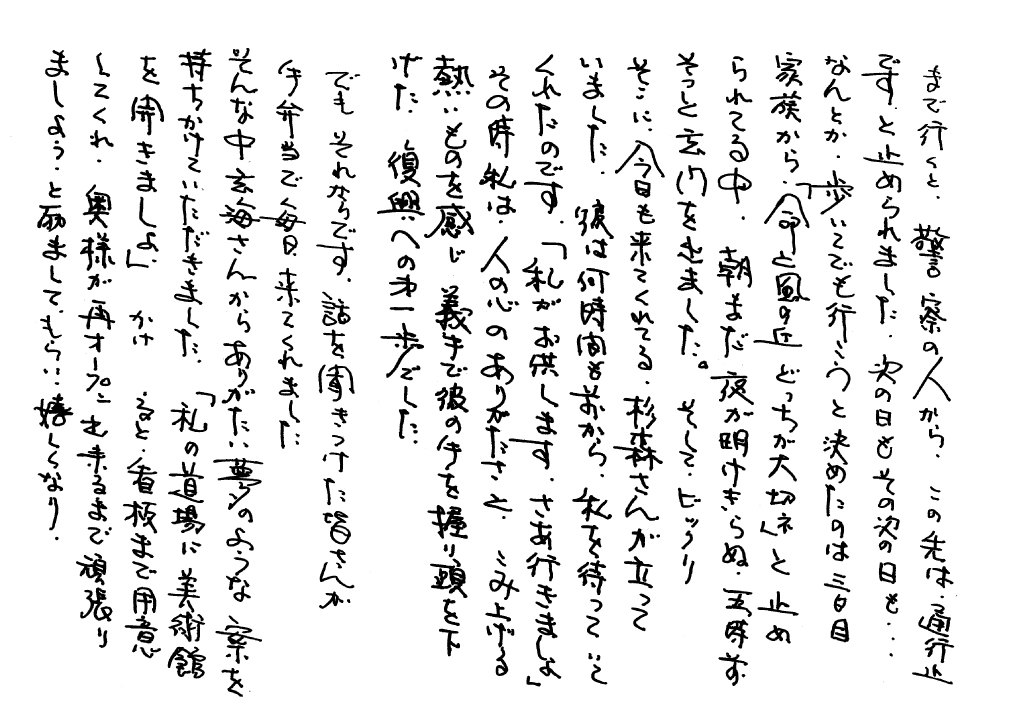 まで行くと、警察の人から、この先は通行止
です、と止められました、次の日もその次の日も・・・
なんとか、「歩いてでも行こう」と決めたのは三日目
家族から、「命と風の丘どっちが大切ネ」と止め
られてる中、朝まだ夜が明けきらぬ、五時前
そっと玄関を出ました。そして、ビックリ
そこに、今日も来てくれてる、杉森さんが立って
いました、彼は何時間も前から、私を待っていて
くれたのです、「私がお供します、さあ行きましょ」
その時私は、人の心のありがたさと、こみ上げる
熱いものを感じ義手で彼の手を握り頭を下
げた、復興への第一歩でした、
でもそれからです、話を聞きつけた皆さんが
手弁当で毎日来てくれました
そんな中玄海さんからありがたい夢のような案を
持ちかけていただきました、「私の道場に美術館
を開きましょ」かけると、看板まで用意
してくれ、奥様が再オープン出来るまで頑張り
ましょう、と励まして、もらい嬉しくなり、